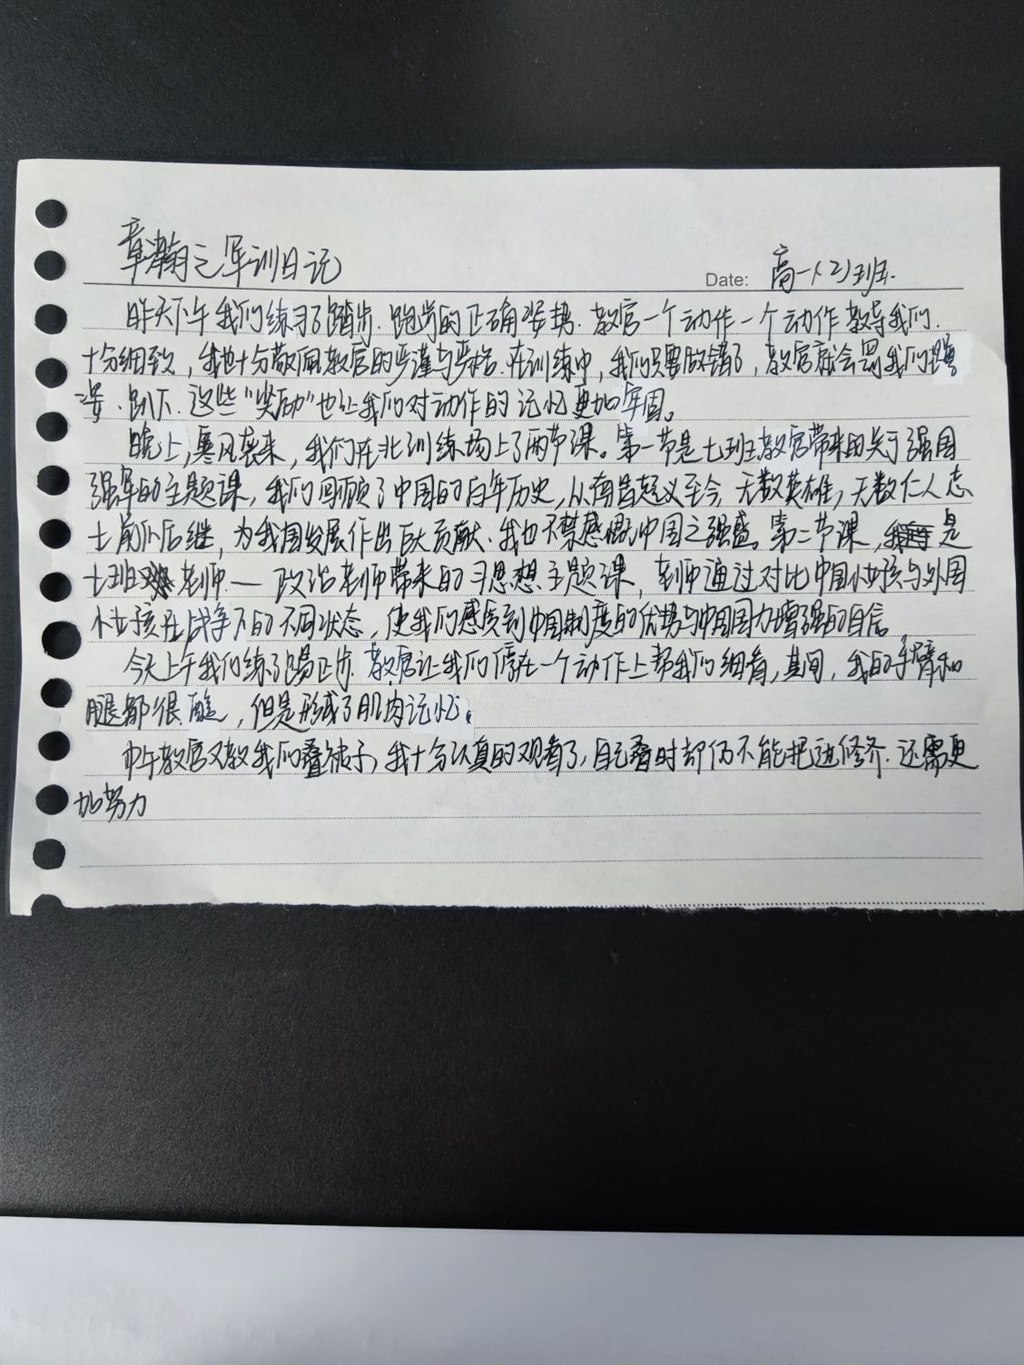 章瀚之军训日记
Date: 高一(2)班.
昨天下午我们练习了踏步.跑步的正确姿势.教官一个动作一个动作教导我们.
十分细致,我也十分敬佩教官的严谨与严格.在训练中,我们只要做错了,教官就会罚我们蹲
姿.趴下.这些"奖励"也让我们对动作的记忆更加牢固。
晚上,寒风袭来,我们在北训练场上了两节课。第一节是七班教官带来的关于强国
强军的主题课,我们回顾了中国的百年历史,从南昌起义至今,无数英雄,无数仁人志
士前仆后继,为我国发展作出巨大贡献.我也不禁感慨中国之强盛。第二节课,是
七班老师——政治老师带来的习思想主题课,老师通过对比中国小女孩与外国
小女孩在战争下的不同状态,使我们感受到中国制度的优势与中国国力增强的自信
今天上午我们练了踢正步.教官让我们停在一个动作上帮我们细看,其间,我的手臂和
腿都很酸,但是形成了肌肉记忆。
中午教官又教我们叠被子,我十分认真的观看了,自己叠时却仍不能把边修齐.还需更
加努力